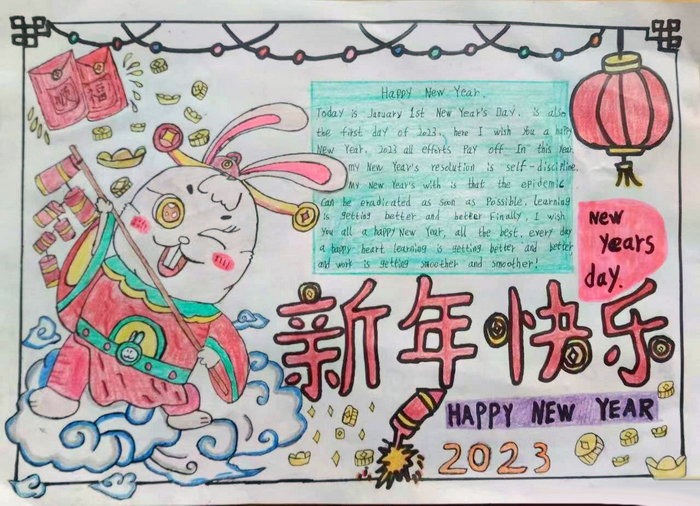 福
Happy New Year.
Today is January 1st New Year's Day, is also
the first day of 2023, here I wish you a happy
New Year, 2023 all efforts Pay off In this Year.
my New Year's resolution is self-discipline.
My New Year's with is that the epidemic
Can be eradicated as soon as Possible, learning
is getting better and better Finally, I wish
You all a happy New Year, all the best, every day
a happy heart learning is getting better and better
and work is getting smoother and smoother!
New
Years
day.
新年快乐
HAPPY NEW YEAR
2023